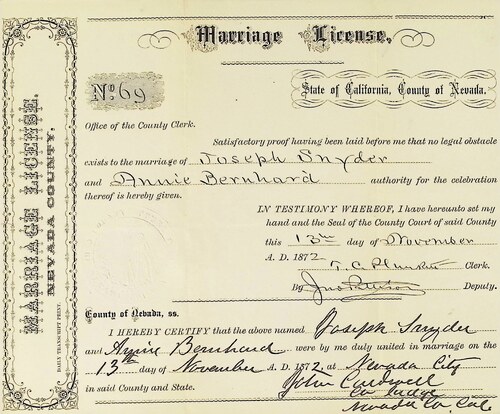 Marriage License,
No. 69
State of California, County of Nevada.
Office of the County Clerk.
Satisfactory proof having been laid before me that no legal obstacle
exists to the marriage of Joseph Snyder
and Annie Bernhard authority for the celebration
thereof is hereby given.
IN TESTIMONY WHEREOF, I have hereunto set my
hand and the Seal of the County Court of said County
this 13th day of November
A. D. 1872
T. C. Plunkett Clerk.
By Jno Pattison Deputy.
County of Nevada, ss.
I HEREBY CERTIFY that the above named Joseph Snyder
and Annie Bernhard were by me duly united in marriage on the
13th day of November A. D. 1872, at Nevada City
in said County and State. John Caldwell
Co Judge
Nevada Co Cal
MARRIAGE LICENSE,
NEVADA COUNTY.
DAILY TRANSCRIPT PRINT.